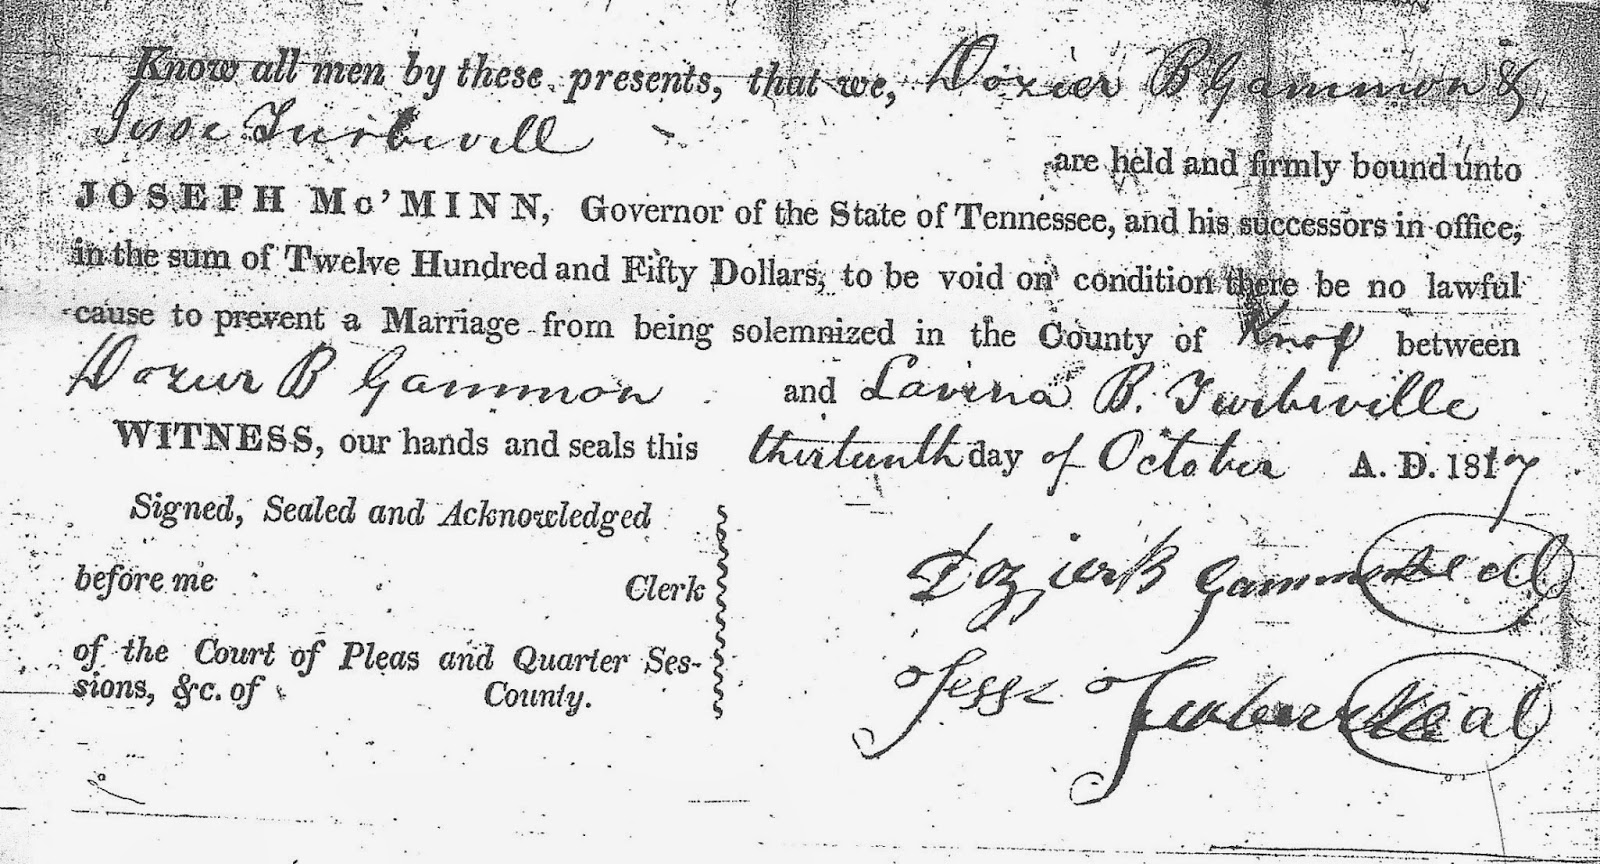 Know all men by these presents, that we, Dozier B Gammon &
Jesse Turbevill
are held and firmly bound unto
JOSEPH Mc'MINN, Governor of the State of Tennessee, and his successors in office,
in the sum of Twelve Hundred and Fifty Dollars, to be void on condition there be no lawful
cause to prevent a Marriage from being solemnized in the County of Knox between
Dozier B Gammon and Lavina B. Turbeville
WITNESS, our hands and seals this thirteenth day of October A. D. 1817
Signed, Sealed and Acknowledged
before me Clerk
of the Court of Pleas and Quarter Ses-
sions, &c. of County.
Dozier B Gammon Seal
Jesse Seal